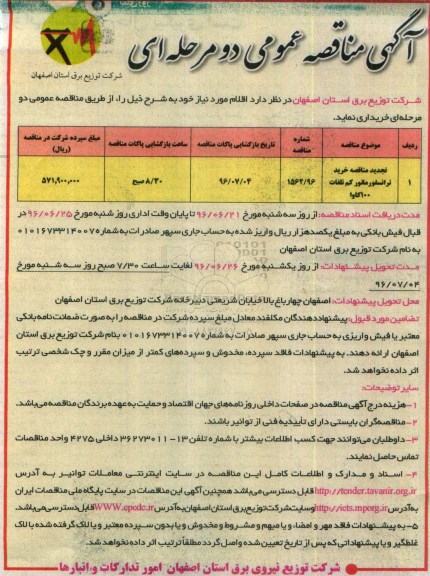 آگهی مناقصه عمومی دو مرحله ای
شرکت توزیع برق استان اصفهان
شرکت توزیع برق استان اصفهان در نظر دارد اقلام مورد نیاز خود به شرح ذیل را، از طریق مناقصه عمومی دو
مرحله‌ای خریداری نماید.
ردیف موضوع مناقصه شماره مناقصه تاریخ بازگشایی پاکات مناقصه ساعت بازگشایی پاکات مناقصه مبلغ سپرده شرکت در مناقصه (ریال)
۱ تجدید مناقصه خرید ترانسفورماتور کم تلفات ۱۰۰کاوا ۱۵۶۲/۹۶ ۹۶/۰۷/۰۴ ۸/۳۰ صبح ۵۷۱,۹۰۰,۰۰۰
مدت دریافت اسناد مناقصه: از روز سه شنبه مورخ ۹۶/۰۶/۲۱ تا پایان وقت اداری روز شنبه مورخ ۹۶/۰۶/۲۵ در
قبال فیش بانکی به مبلغ یکصدهزار ریال واریز شده به حساب جاری سپهر صادرات به شماره ۰۱۰۱۶۷۳۳۱۴۰۰۷
به نام شرکت توزیع برق استان اصفهان
مدت تحویل پیشنهادات: از روز یکشنبه مورخ ۹۶/۰۶/۲۶ لغایت ساعت ۷/۳۰ صبح روز سه شنبه مورخ
۹۶/۰۷/۰۴
محل تحویل پیشنهادات: اصفهان چهارباغ بالا خیابان شریعتی دبیرخانه شرکت توزیع برق استان اصفهان
تضامین مورد قبول: پیشنهاددهندگان مکلفند معادل مبلغ سپرده شرکت در مناقصه را به صورت ضمانت نامه بانکی
معتبر یا فیش واریزی به حساب جاری سپهر صادرات به شماره ۰۱۰۱۶۷۳۳۱۴۰۰۷ بنام شرکت توزیع برق استان
اصفهان ارائه دهند. به پیشنهادات فاقد سپرده، مخدوش و سپرده‌های کمتر از میزان مقرر و چک شخصی ترتیب
اثر داده نخواهد شد.
سایر توضیحات:
۱- هزینه درج آگهی مناقصه در صفحات داخلی روزنامه‌های جهان اقتصاد و حمایت به عهده برندگان مناقصه می‌باشد.
۲- مناقصه‌گران بایستی دارای تأییدیه فنی از توانیر باشند.
۳- داوطلبان می‌توانند جهت کسب اطلاعات بیشتر با شماره تلفن ۱۳-۳۶۲۷۳۰۱۱ داخلی ۴۲۷۵ واحد مناقصات
تماس حاصل نمایند.
۴- اسناد و مدارک و اطلاعات کامل این مناقصه در سایت اینترنتی معاملات توانیر به آدرس
http://tender.tavanir.org.ir قابل دسترسی می‌باشد همچنین آگهی این مناقصات در سایت پایگاه ملی مناقصات ایران
به آدرس http://iets.mporg.ir و سایت شرکت توزیع برق استان اصفهان به آدرس WWW.epedc.ir قابل دسترسی می‌باشد.
۵- به پیشنهادات فاقد مهر و امضاء و یا مبهم و مشروط و مخدوش و یا بدون سپرده معتبر و یا لاک گرفته شده با لاک
غلط‌گیر و یا پیشنهاداتی که پس از تاریخ تعیین شده واصل گردد مطلقاً ترتیب اثر داده نخواهد شد.
شرکت توزیع نیروی برق استان اصفهان امور تدارکات و انبارها